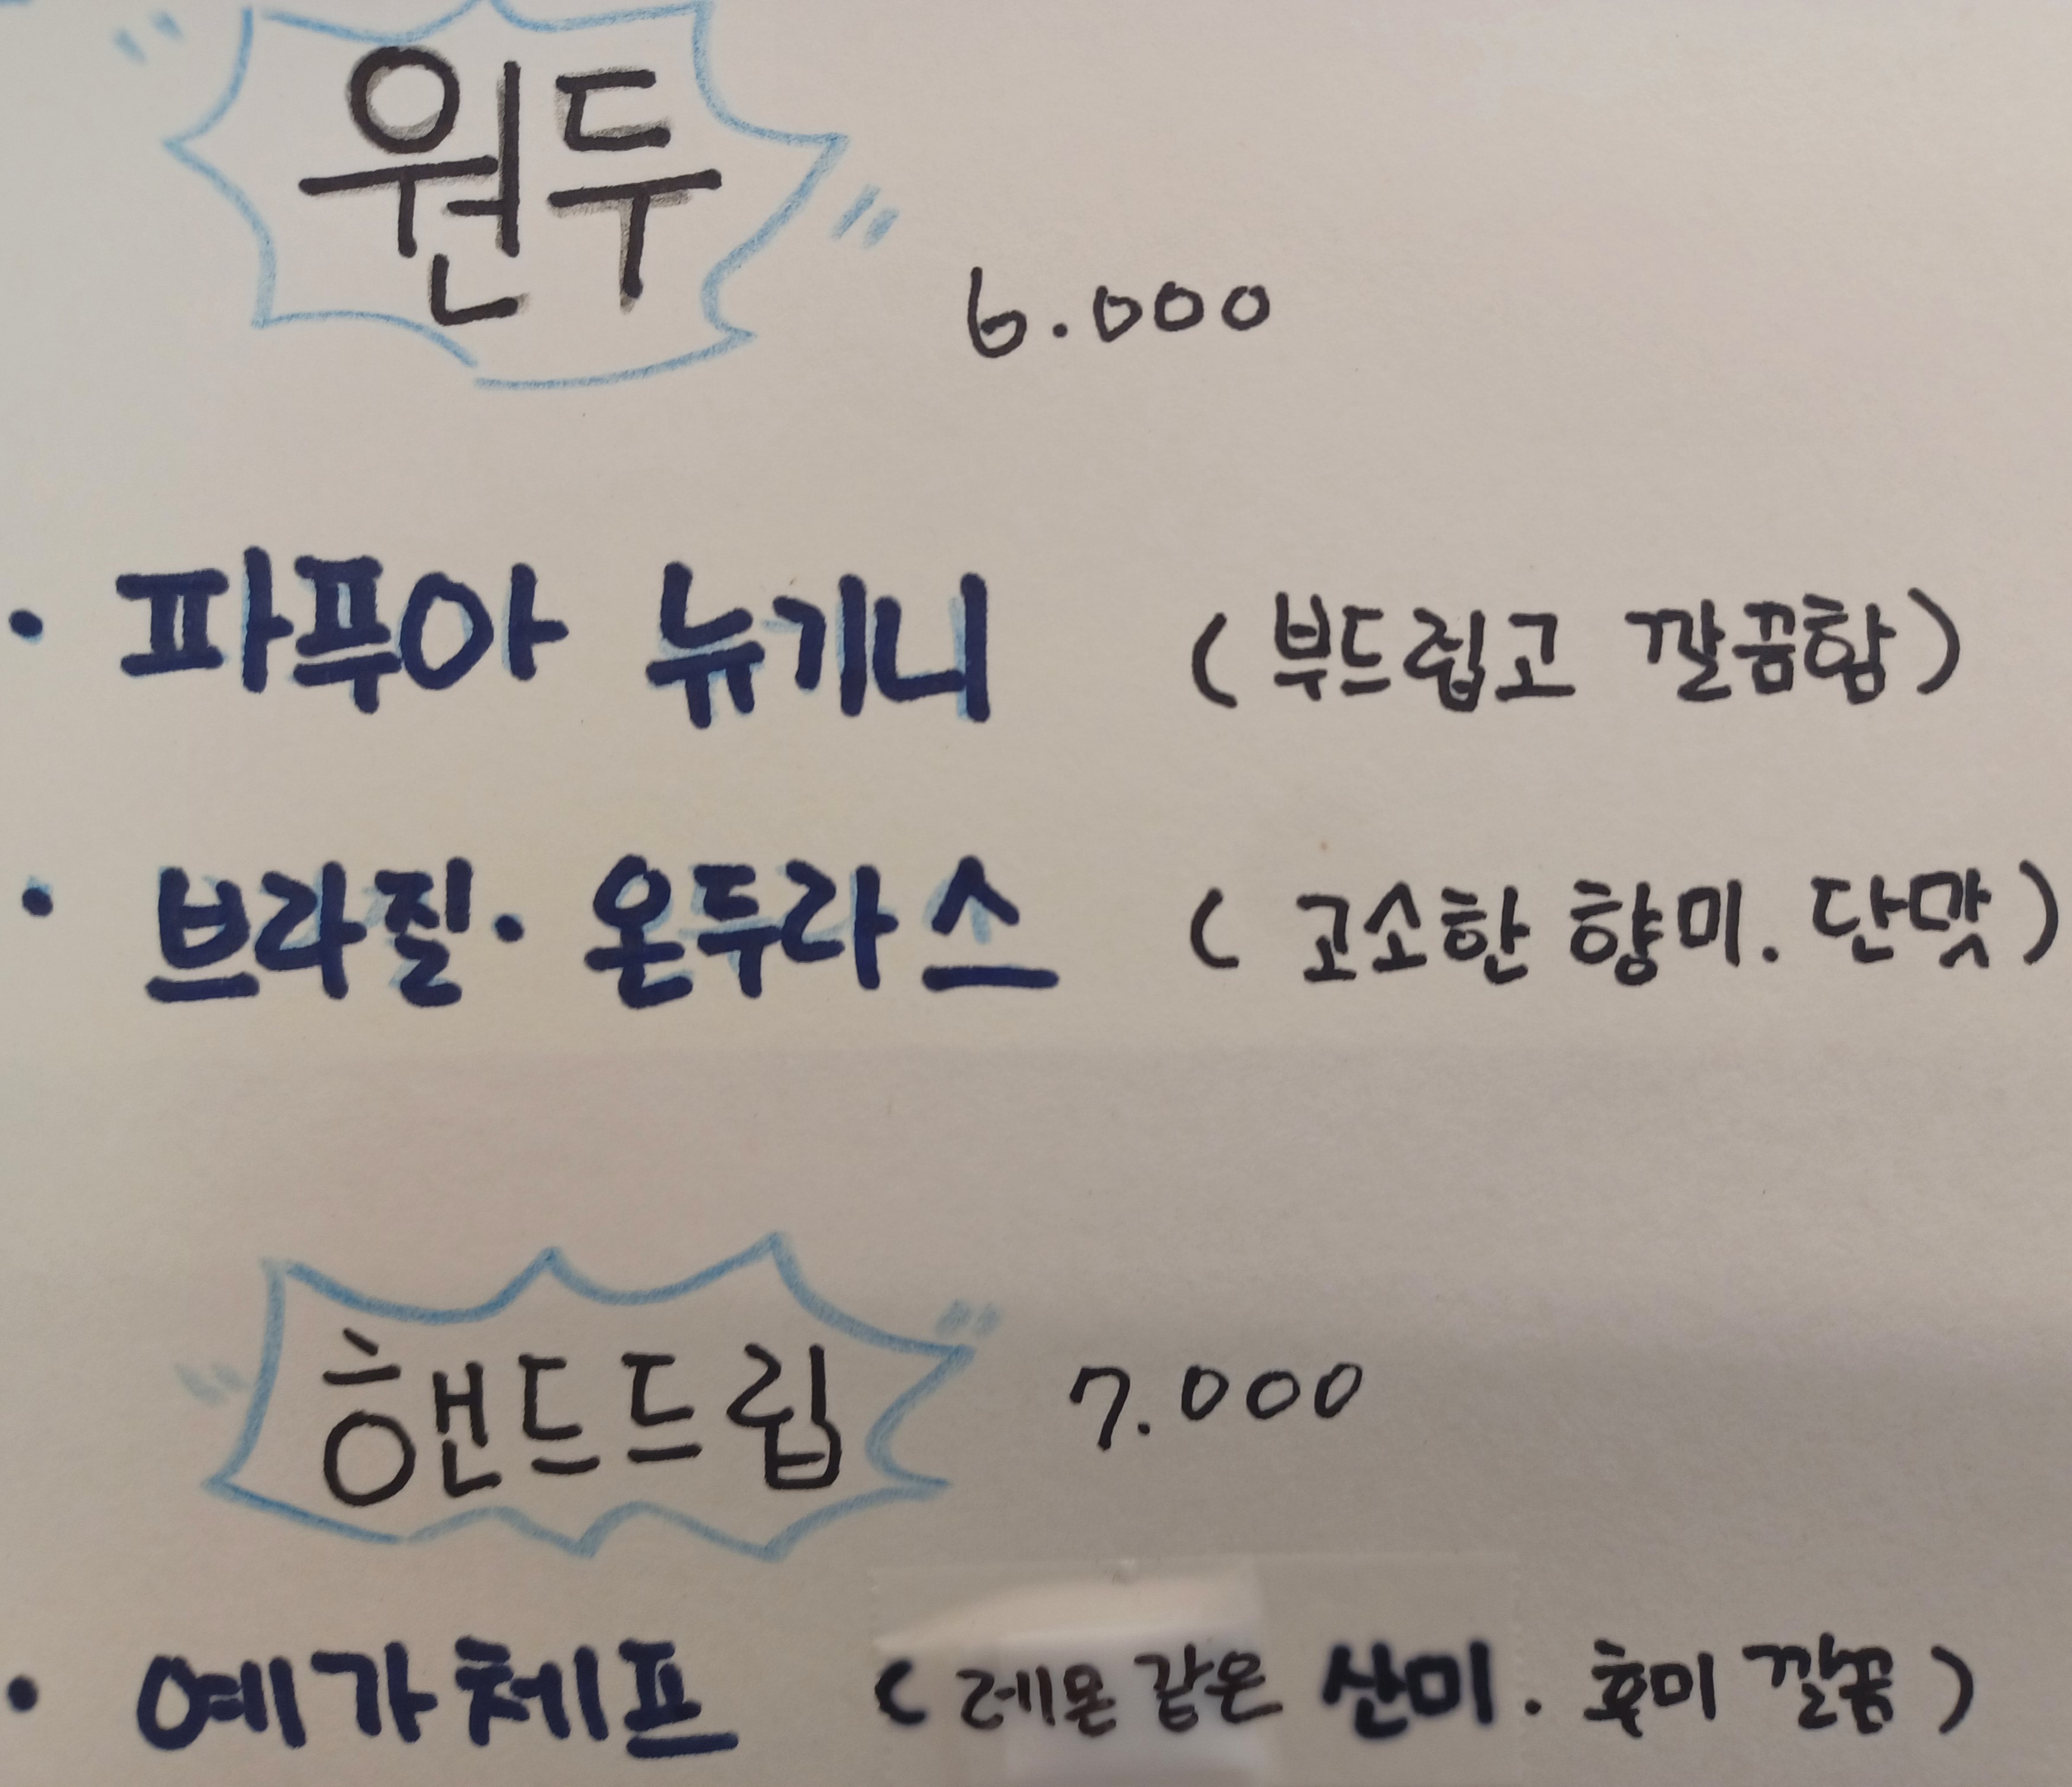 원두 6.000
· 파푸아 뉴기니 (부드럽고 깔끔함)
· 브라질 · 온두라스 (고소한 향미. 단맛)
핸드드립 7.000
· 예가체프 (레몬 같은 산미. 후미 깔끔)